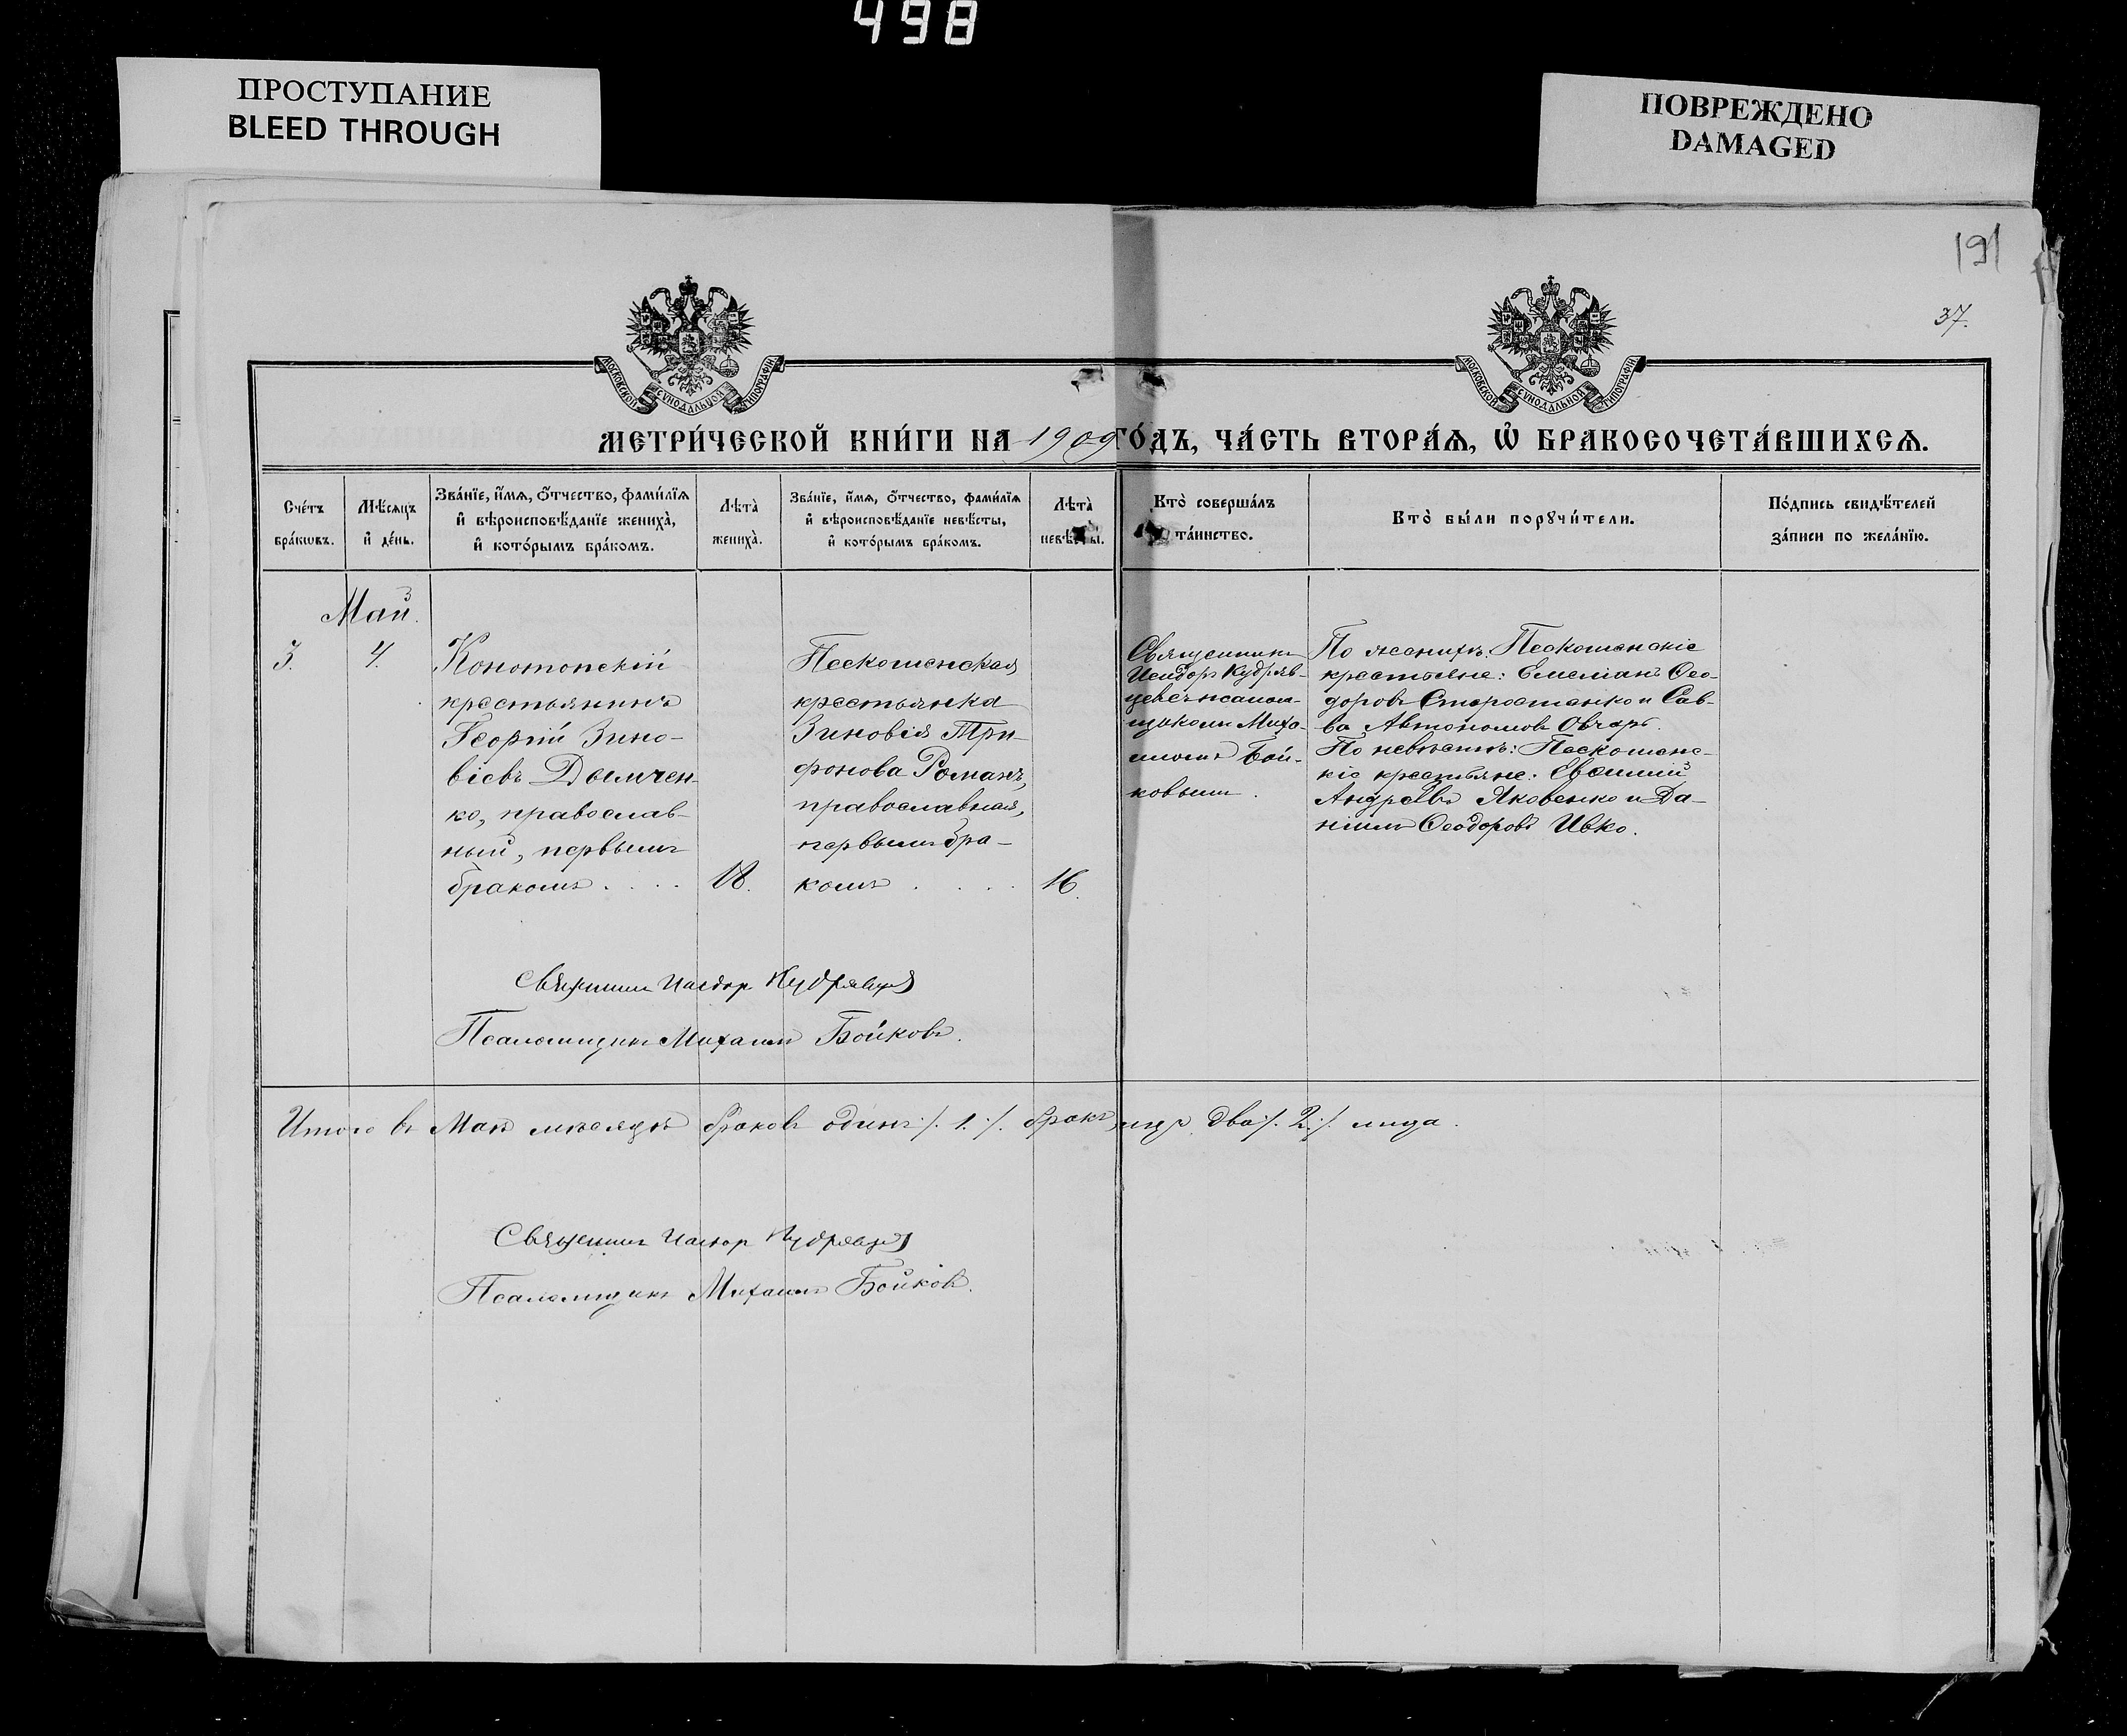 498
ПРОСТУПАНИЕ
BLEED THROUGH
ПОВРЕЖДЕНО
DAMAGED
191
37.
МОСКОВСКОЙ СУНОДАЛЬНОЙ ТИПОГРАФІИ
МОСКОВСКОЙ СУНОДАЛЬНОЙ ТИПОГРАФІИ
МЕТРИ́ЧЕСКОЙ КНИ́ГИ НА 1909 ГО́ДЪ, ЧА́СТЬ ВТОРА́Ѧ, Ѡ҆ БРАКОСОЧЕТА́ВШИХСѦ.
Сче́тъ
бра́кѡвъ.
Мѣ́сяцъ
и҆ де́нь.
Зва́нїе, и҆́мѧ, ѻ҆́тчество, фами́лїѧ
и҆ вѣроисповѣ́данїе жениха̀,
и҆ кото́рымъ бра́комъ.
Лѣта̀
жениха̀.
Зва́нїе, и҆́мѧ, ѻ҆́тчество, фами́лїѧ
и҆ вѣроисповѣ́данїе невѣ́сты,
и҆ кото́рымъ бра́комъ.
Лѣта̀
невѣ́сты.
Кто̀ соверша́лъ
та́инство.
Кто̀ бы́ли порꙋчи́тели.
По́дпись свидѣ́телей
за́писи по жела́нїю.
Май.
3.
4.
Конотопскій
крестьянинъ
Георгій Зино-
віевъ Дымчен-
ко, православ-
ный, первымъ
бракомъ . . . .
18.
Пескошенская
крестьянка
Зиновія Три-
фонова Романъ,
православная,
первымъ бра-
комъ . . . .
16.
Священникъ
Исидоръ Кудряв-
цевъ съ псалом-
щикомъ Миха-
иломъ Бой-
ковымъ.
По женихѣ: Пескошенскіе
крестьяне: Емеліанъ Ѳео-
доровъ Старостенко и Сав-
ва Автономовъ Овчаръ.
По невѣстѣ: Пескошенс-
кіе крестьяне: Евѳимій
Андреевъ Яковенко и Да-
ніилъ Ѳеодоровъ Ивко.
Священникъ Исидоръ Кудрявцевъ
Псаломщикъ Михаилъ Бойковъ.
Итого въ Маѣ мѣсяцѣ браковъ одинъ ./. 1 ./. бракъ, лицъ два ./. 2 ./. лица.
Священникъ Исидоръ Кудрявцевъ
Псаломщикъ Михаилъ Бойковъ.